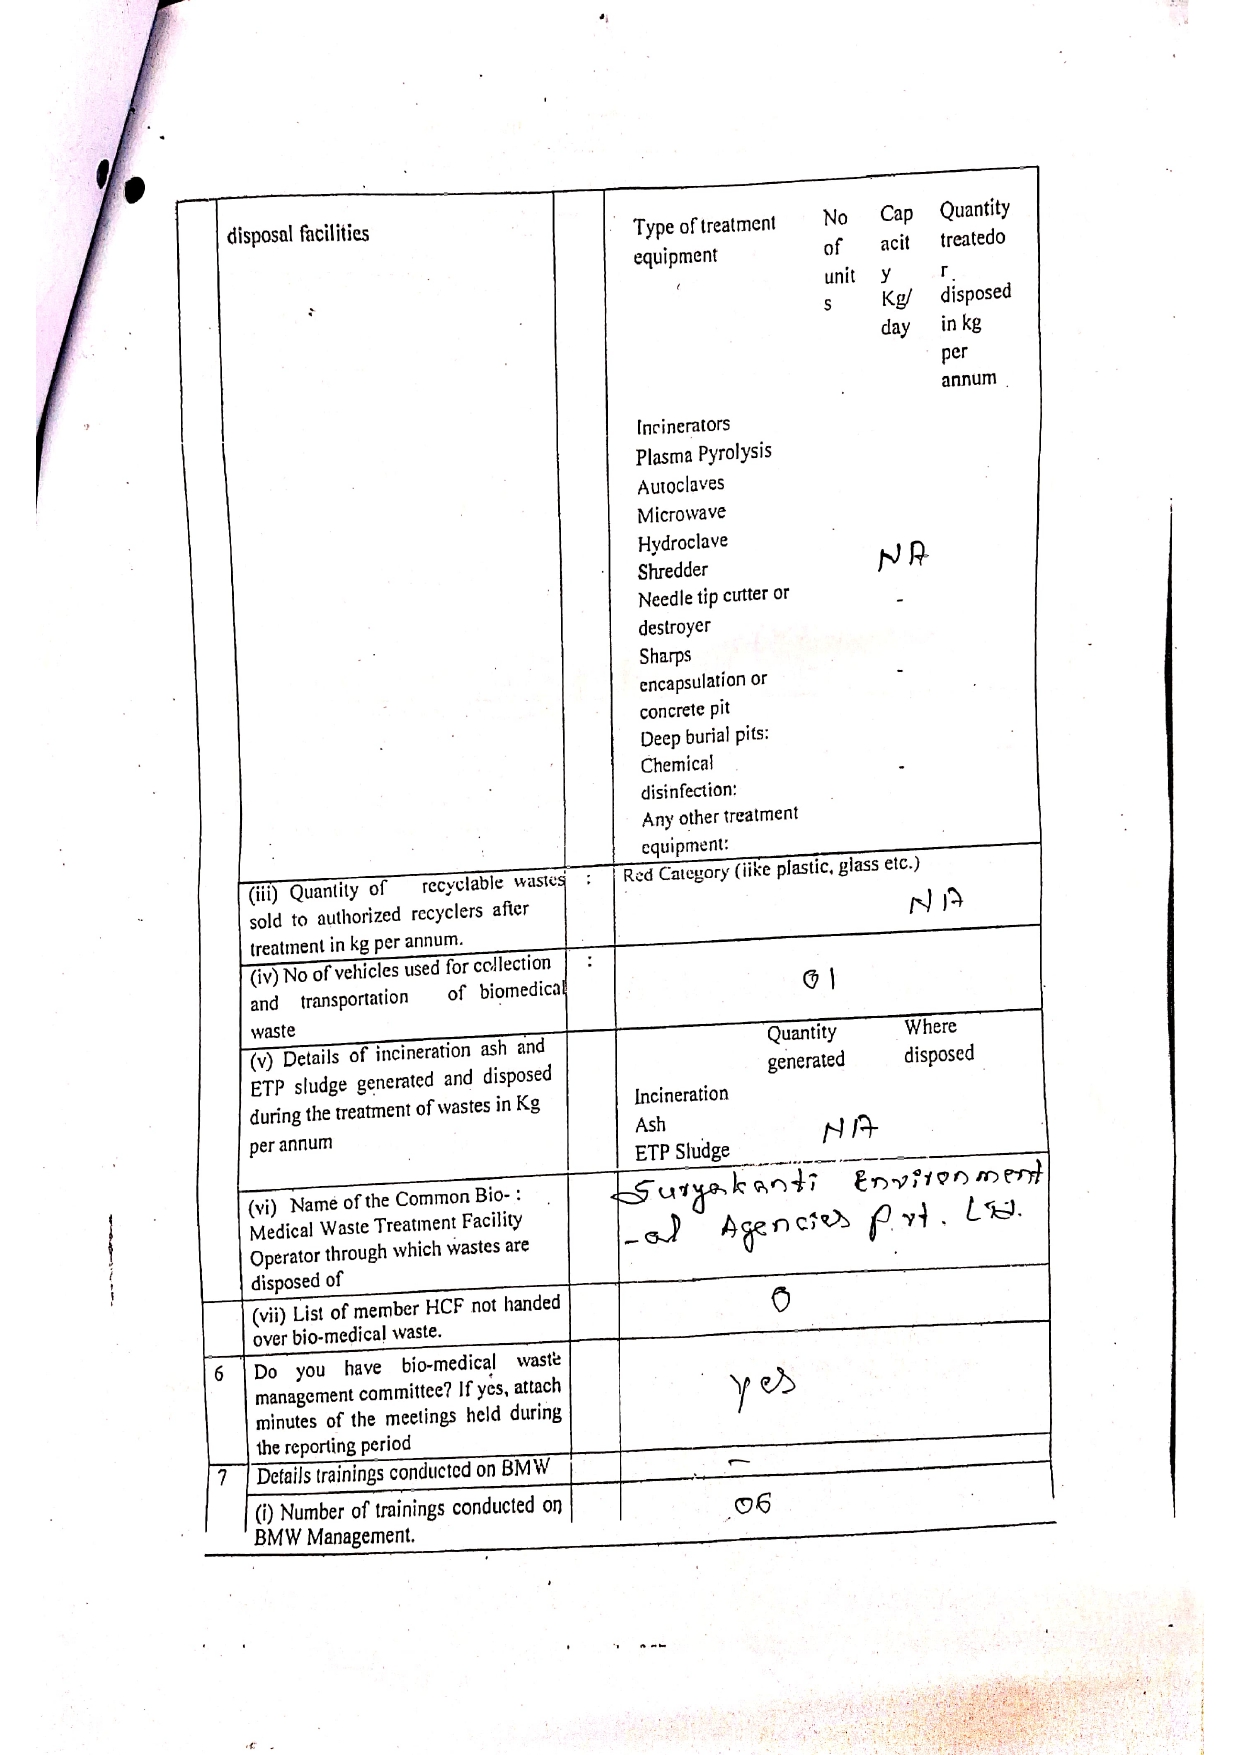 disposal facilities
Type of treatment equipment
No of unit s
Cap acit y Kg/ day
Quantity treatedo r disposed in kg per annum
Incinerators
Plasma Pyrolysis
Autoclaves
Microwave
Hydroclave
NA
Shredder
Needle tip cutter or -
destroyer
Sharps
encapsulation or -
concrete pit
Deep burial pits:
Chemical -
disinfection:
Any other treatment
equipment:
(iii) Quantity of recyclable wastes :
sold to authorized recyclers after
treatment in kg per annum.
Red Category (like plastic, glass etc.)
NA
(iv) No of vehicles used for collection :
and transportation of biomedical
waste
01
(v) Details of incineration ash and
ETP sludge generated and disposed
during the treatment of wastes in Kg
per annum
Quantity generated
Where disposed
Incineration
Ash
NA
ETP Sludge
(vi) Name of the Common Bio- :
Medical Waste Treatment Facility
Operator through which wastes are
disposed of
Suryakanti Environment
-al Agencies Pvt. Ltd.
(vii) List of member HCF not handed
over bio-medical waste.
0
6 Do you have bio-medical waste
management committee? If yes, attach
minutes of the meetings held during
the reporting period
yes
7 Details trainings conducted on BMW
-
(i) Number of trainings conducted on
BMW Management.
06